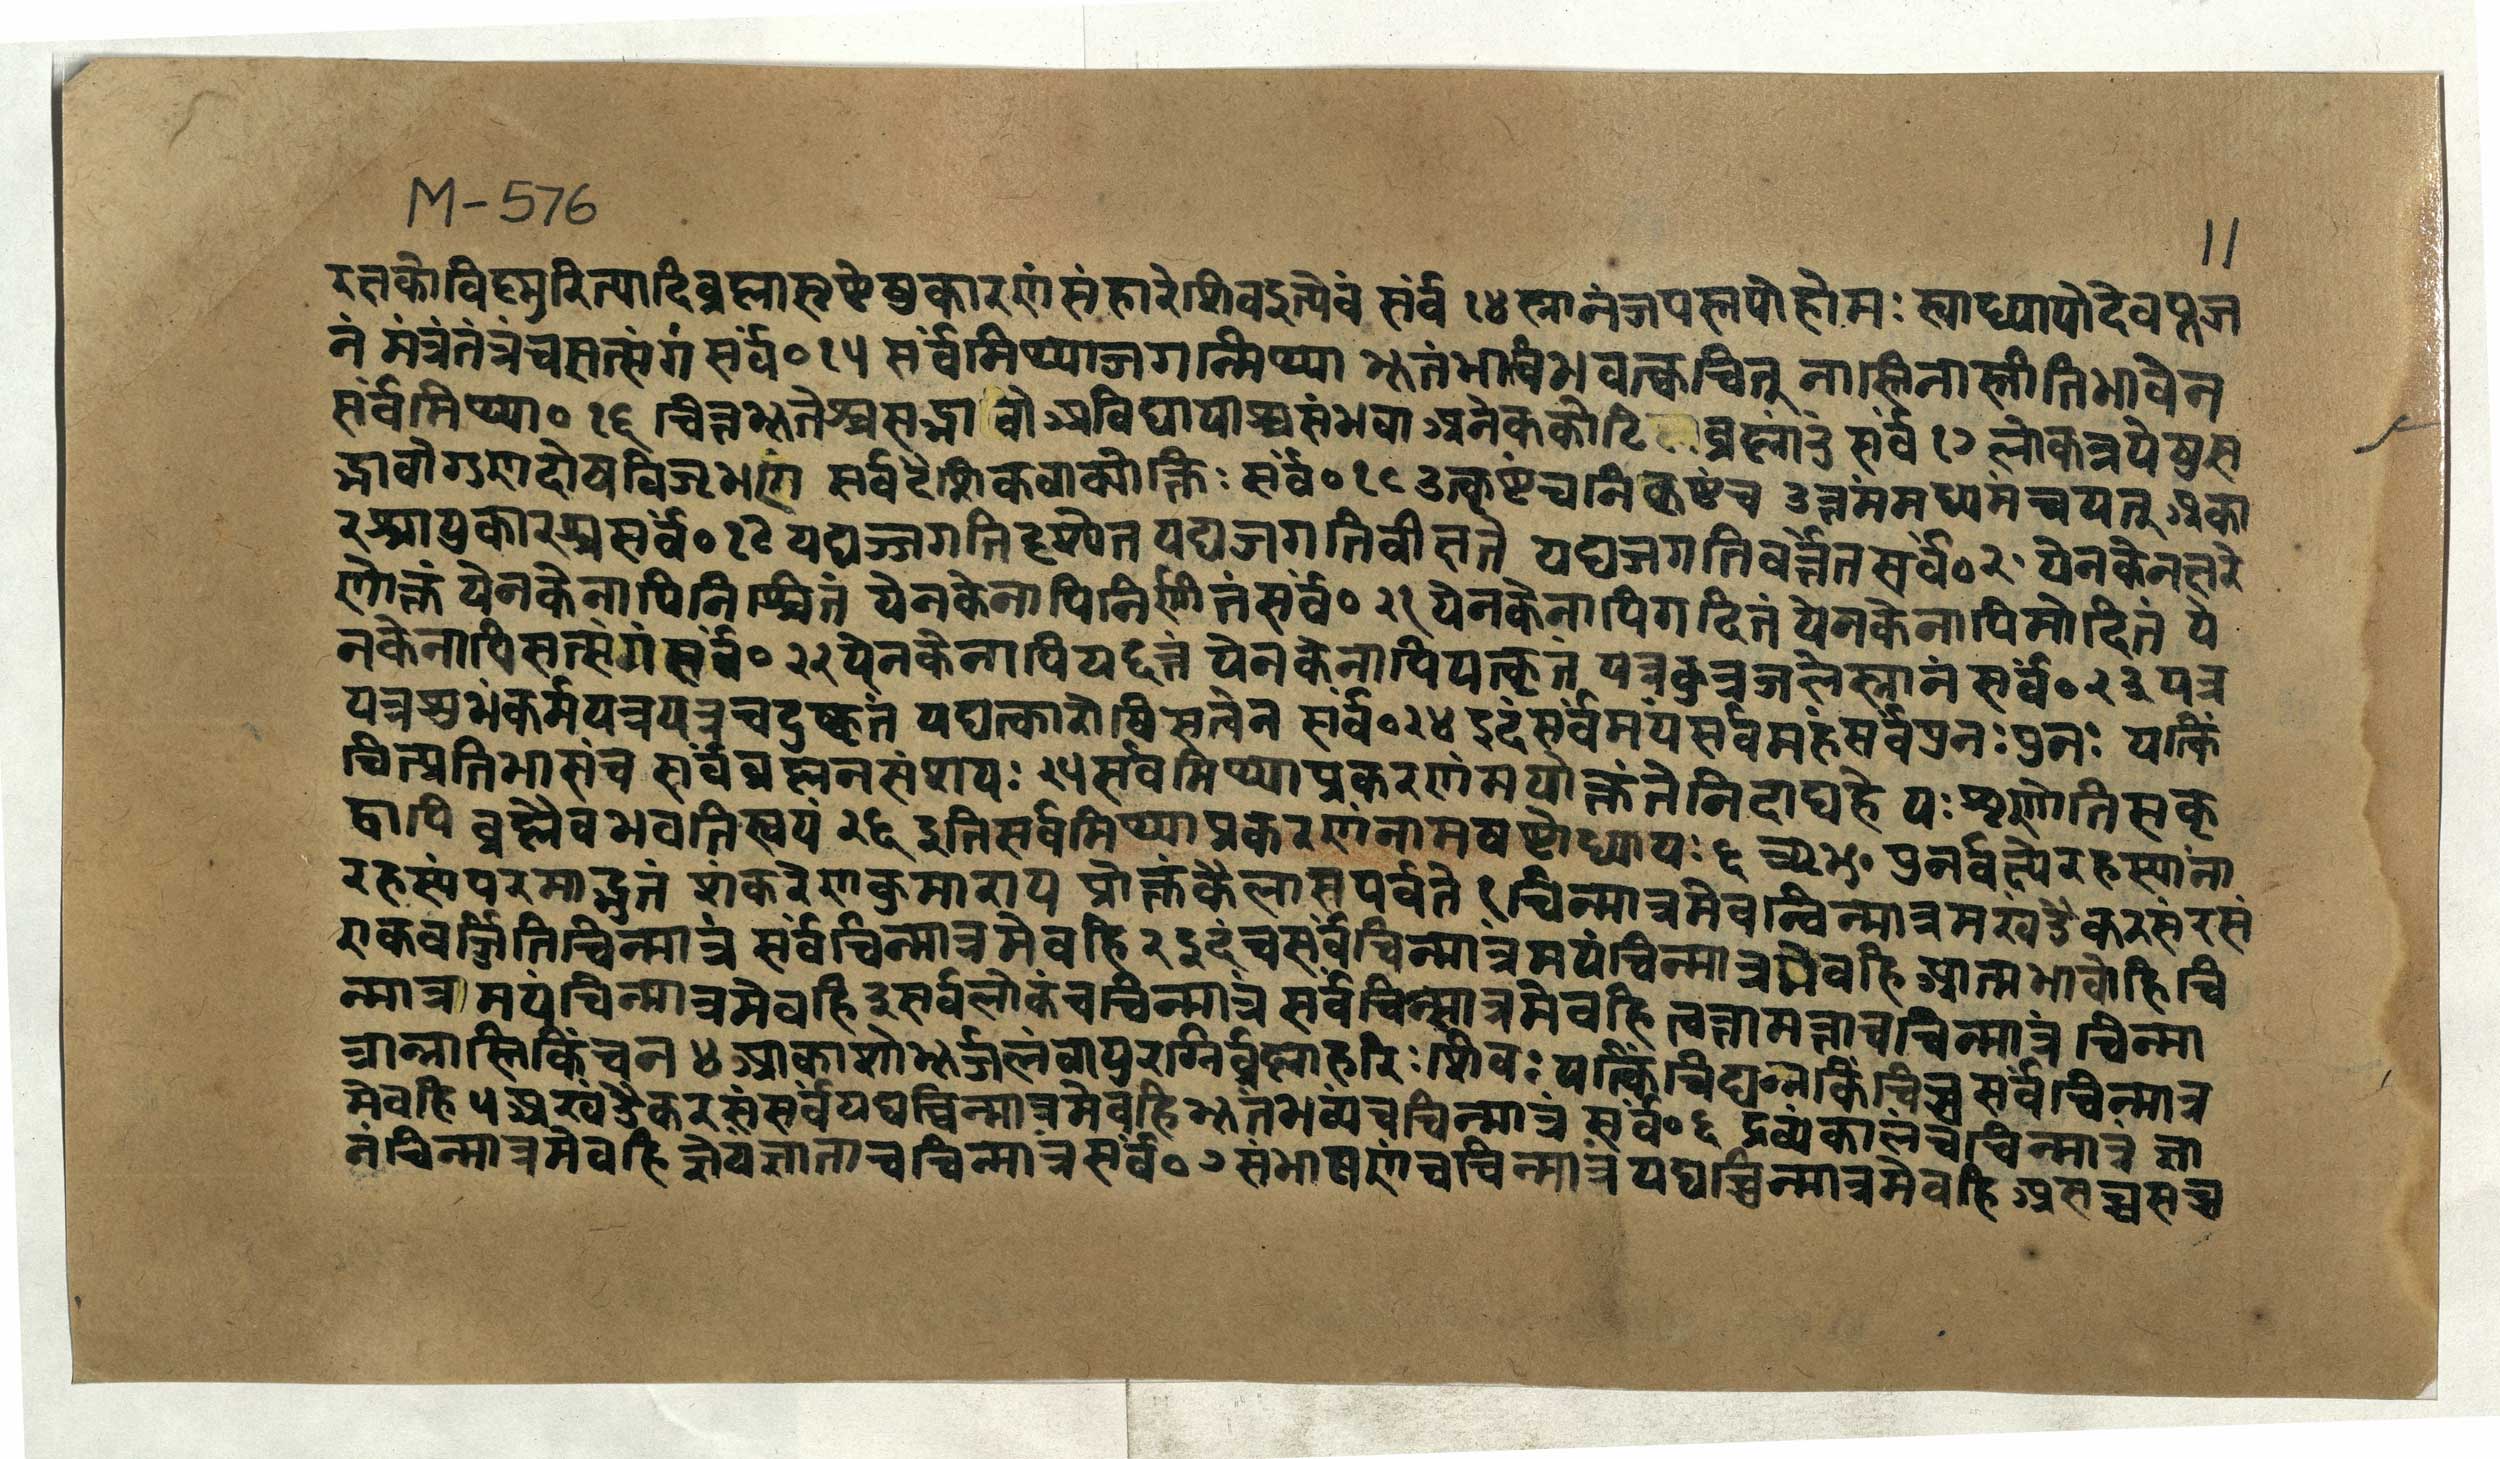 M-576
11
रक्षकोविष्णुरित्यादिब्रह्मासृष्टेस्तुकारणं संहारेशिवइत्येवं सर्वं १४ स्नानंजपस्तपोहोमः स्वाध्यायोदेवपूज
नं मंत्रंतंत्रंचसत्संगं सर्वं० १५ सर्वंमिथ्याजगन्मिथ्या भूतंभाविभवत्क्वचित् नास्तिनास्तीतिभावेन
सर्वंमिथ्या० १६ चित्तभूतेश्चसद्भावोअविद्यायाश्चसंभवाअनेककोटि ब्रह्मांडं सर्वं १७ लोकत्रयेषुस
द्भावोगुणदोषविजृंभणं सर्वदेशिकवाक्योक्तिः सर्वं० १८ उत्कृष्टंचनिकृष्टंच उत्तमंमध्यमंचयत् अका
रश्चाप्युकारश्चसर्वं० १९ यद्यज्जगतिदृश्येत यद्यजगतिवीक्षते यद्यजगतिवर्त्तेतसर्वं० २० येनकेनक्षरे
णोक्तं येनकेनापिनिश्चितं येनकेनापिनिर्णीतंसर्वं० २१ येनकेनापिगदितं येनकेनापिमोदितं ये
नकेनापिसत्संगंसर्वं० २२ येनकेनापियद्दत्तं येनकेनापियत्कृतं यत्रकुत्रजलेस्नानं सर्वं० २३ यत्र
यत्रशुभंकर्मयत्रयत्रचदुष्कृतं यद्यत्कारोषिसत्वेन सर्वं० २४ इदंसर्वमयंसर्वमहंसर्वंपुनःपुनः यत्किं
चित्प्रतिभासंच सर्वंब्रह्मनसंशयः २५ सर्वंमिथ्याप्रकरणंमयोक्तंतेनिदाघहे यःशृणोतिसकृ
द्वापि ब्रह्मैवभवतिस्वयं २६ इतिसर्वमिथ्याप्रकरणंनामषष्टोध्यायः ६ पुनर्वक्ष्येरहस्यानां
रहस्यंपरमाद्भुतं शंकरेणकुमाराय प्रोक्तंकैलासपर्वते १ चिन्मात्रमेवचिन्मात्रमखंडैकरसंरसं
एकवर्जितिचिन्मात्रं सर्वंचिन्मात्रमेवहि २ इदंचसर्वंचिन्मात्रमयंचिन्मात्रमेवहि आत्मभावोहिचि
न्मात्रमयंचिन्मात्रमेवहि ३ सर्वलोकंचचिन्मात्रं सर्वंचिन्मात्रमेवहि त्वत्तामत्ताचचिन्मात्रं चिन्मा
त्रान्नास्तिकिंचन ४ आकाशोभूर्जलंवायुरग्निर्ब्रह्माहरिःशिवः यत्किंचिद्यन्नकिंचिच्च सर्वंचिन्मात्र
मेवहि ५ अखंडैकरसंसर्वंयद्यच्चिन्मात्रमेवहि भूतंभव्यंचचिन्मात्रं सर्वं० ६ द्रव्यंकालंचचिन्मात्रं ज्ञा
नंचिन्मात्रमेवहि ज्ञेयंज्ञाताचचिन्मात्रंसर्वं० ७ संभाषणंचचिन्मात्रंयद्यच्चिन्मात्रमेवहि असच्चसच्च